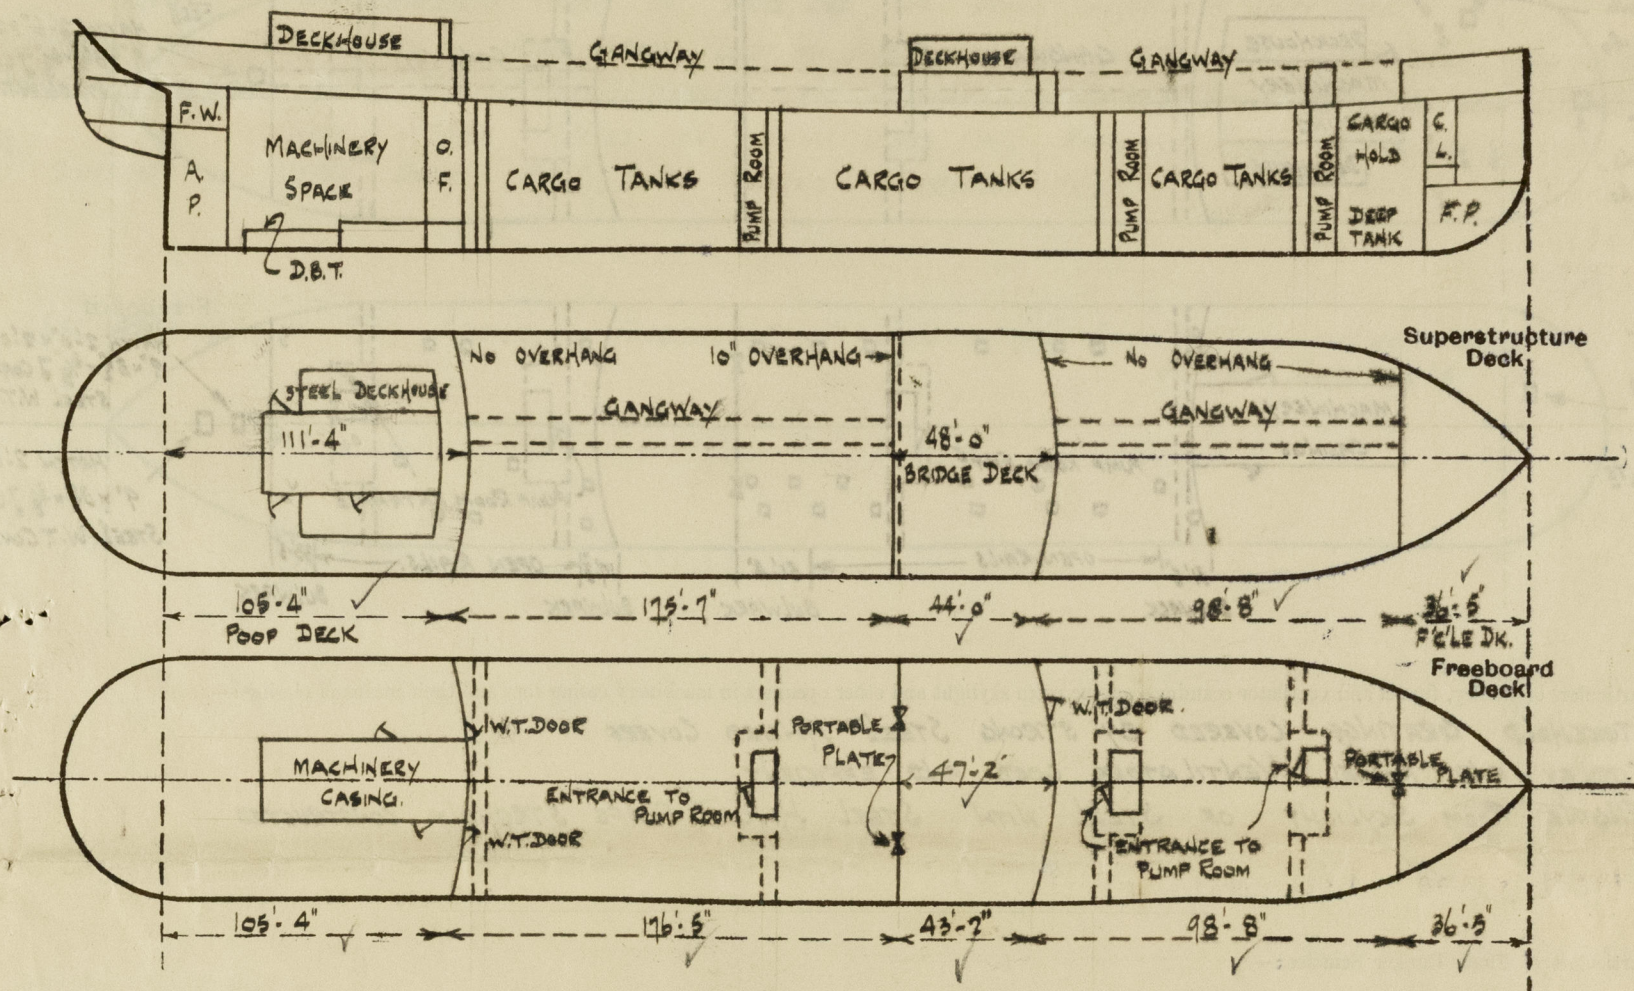 DECKHOUSE
GANGWAY
DECKHOUSE
GANGWAY
F.W.
A.
P.
MACHINERY
SPACE
O.
F.
CARGO TANKS
PUMP ROOM
CARGO TANKS
PUMP ROOM
CARGO TANKS
PUMP ROOM
CARGO
HOLD
DEEP
TANK
C.
L.
F.P.
D.B.T.
Superstructure
Deck
NO OVERHANG
10" OVERHANG
NO OVERHANG
STEEL DECKHOUSE
GANGWAY
GANGWAY
111'-4"
48'-0"
BRIDGE DECK
105'-4"
POOP DECK
175'-7"
44'-0"
98'-8"
36'-5"
F'C'LE DK.
Freeboard
Deck
W.T.DOOR
PORTABLE
PLATE
W.T.DOOR.
MACHINERY
CASING.
ENTRANCE TO
PUMP ROOM
47'-2"
PORTABLE
PLATE
W.T.DOOR
ENTRANCE TO
PUMP ROOM
105'-4"
176'-5"
43'-2"
98'-8"
36'-5"